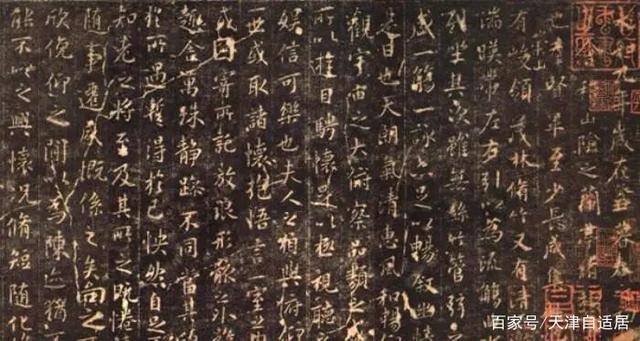 永和九年歲在癸丑暮春
山陰之蘭亭脩禊
也羣賢畢至少長咸集
有峻領茂林脩竹又有清
湍暎帶左右引以為流觴曲
列坐其次雖無絲竹管弦
盛一觴一詠亦足以暢敘幽情
是日也天朗氣清惠風和暢
觀宇宙之大俯察品類之盛
所以遊目騁懷足以極視聽
娛信可樂也夫人之相與俯仰
一世或取諸懷抱悟言一室之
或因寄所託放浪形骸之外雖
趣舍萬殊靜躁不同當其
於所遇暫得於己怏然自足
知老之將至及其所之既惓
隨事遷感慨係之矣向之
欣俛仰之閒以為陳迹猶
能不以之興懷況脩短隨化
百家号/天津自适居